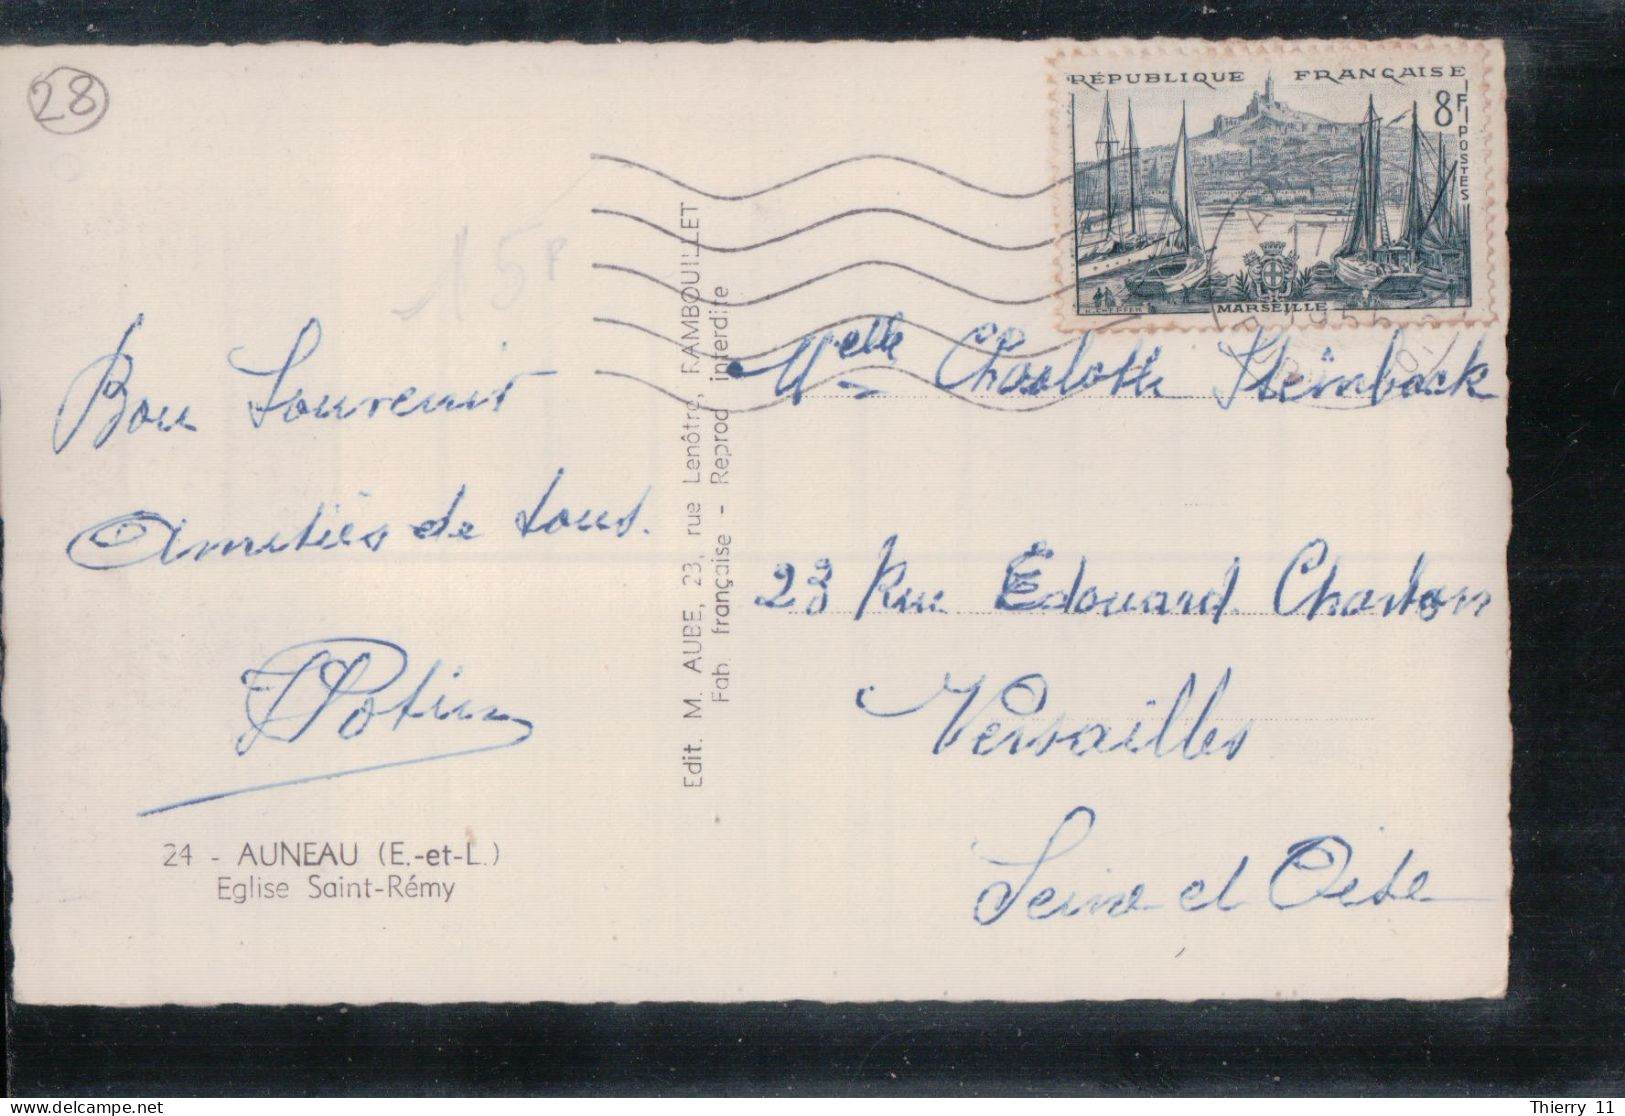 28
RÉPUBLIQUE FRANÇAISE
8F
POSTES
MARSEILLE
17
1956
15F
Edit. M. AUBE, 23, rue Lenôtre, RAMBOUILLET
Fab. française - Reprod interdite
Bon Souvenir
Amitiés de tous.
Potin
24 - AUNEAU (E.-et-L.)
Eglise Saint-Rémy
Melle Charlotte Steinback
23 Rue Edouard Charton
Versailles
Seine et Oise
Thierry 11